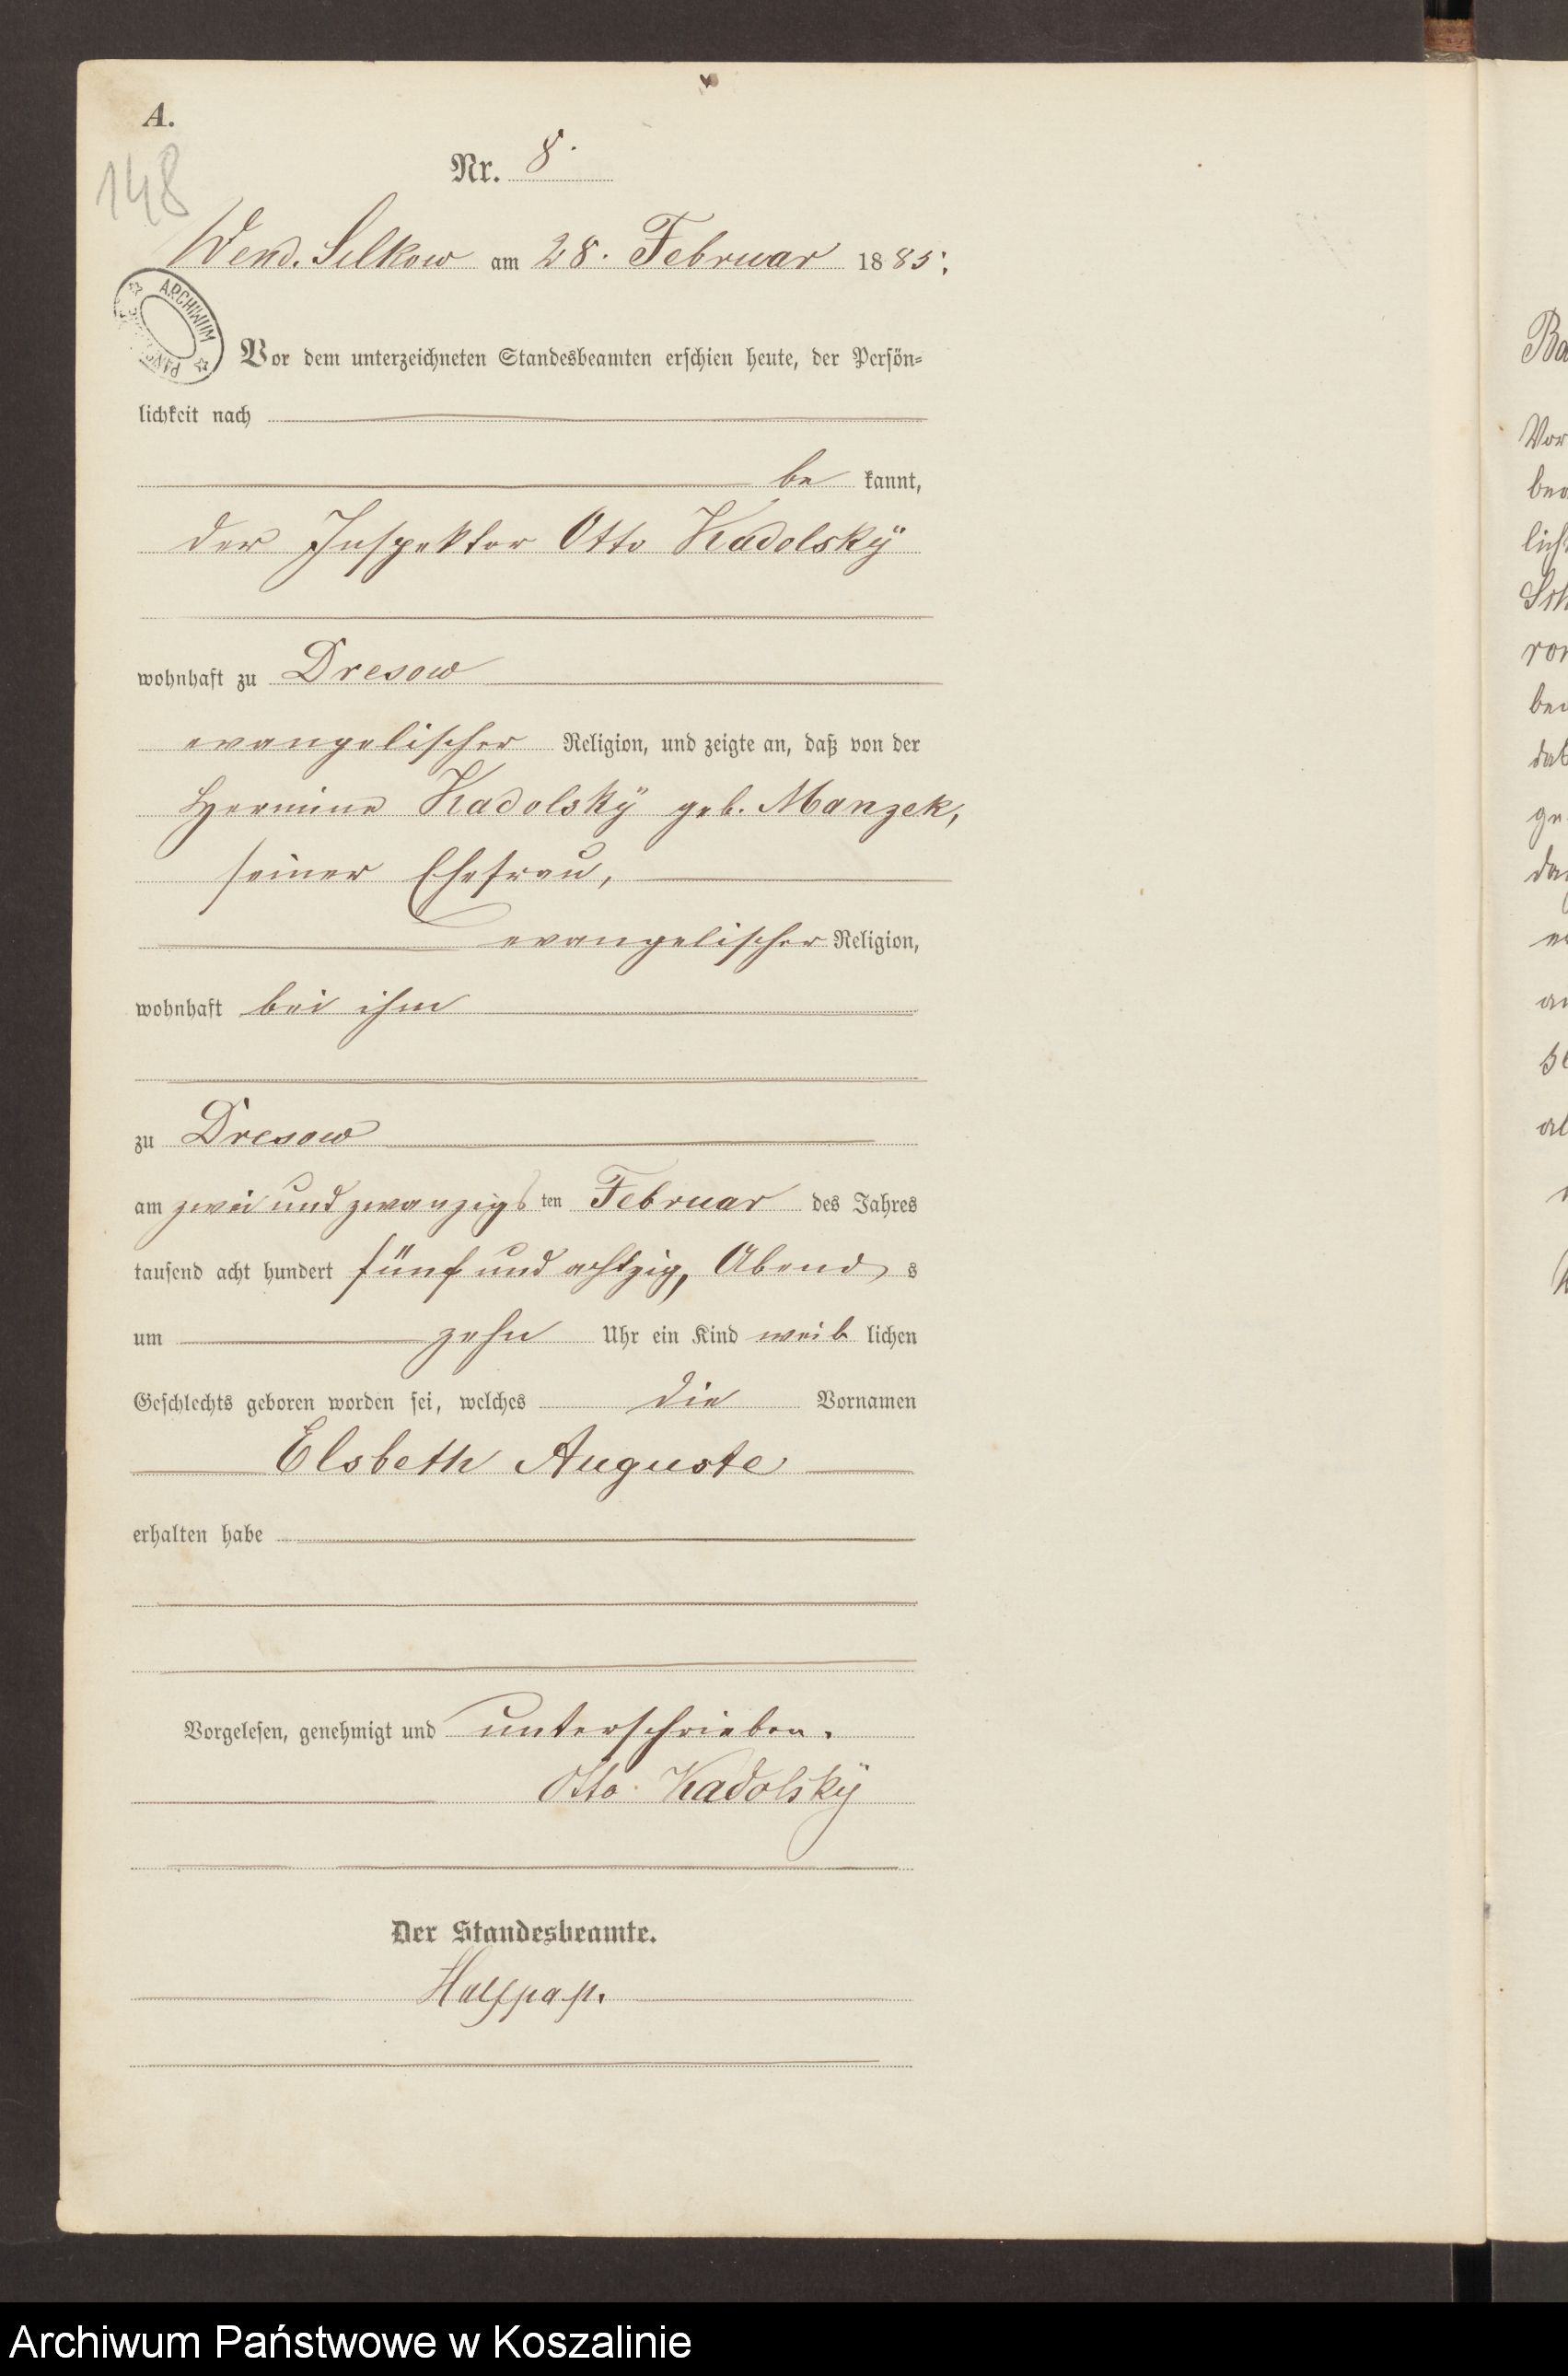 A.
148
Nr. 8.
Wend. Silkow am 28. Februar 1885.
ARCHIWUM
Vor dem unterzeichneten Standesbeamten erschien heute, der Persön=
lichkeit nach
be kannt,
der Inspektor Otto Kadolsky
wohnhaft zu Dresow
evangelischer Religion, und zeigte an, daß von der
Hermine Kadolsky geb. Manzek,
seiner Ehefrau,
evangelischer Religion,
wohnhaft bei ihm
zu Dresow
am zwei und zwanzigs ten Februar des Jahres
tausend acht hundert fünf und achtzig, Abend s
um zehn Uhr ein Kind weib lichen
Geschlechts geboren worden sei, welches die Vornamen
Elsbeth Auguste
erhalten habe
Vorgelesen, genehmigt und unterschrieben.
Otto Kadolsky
Der Standesbeamte.
Halfpap.
Archiwum Państwowe w Koszalinie